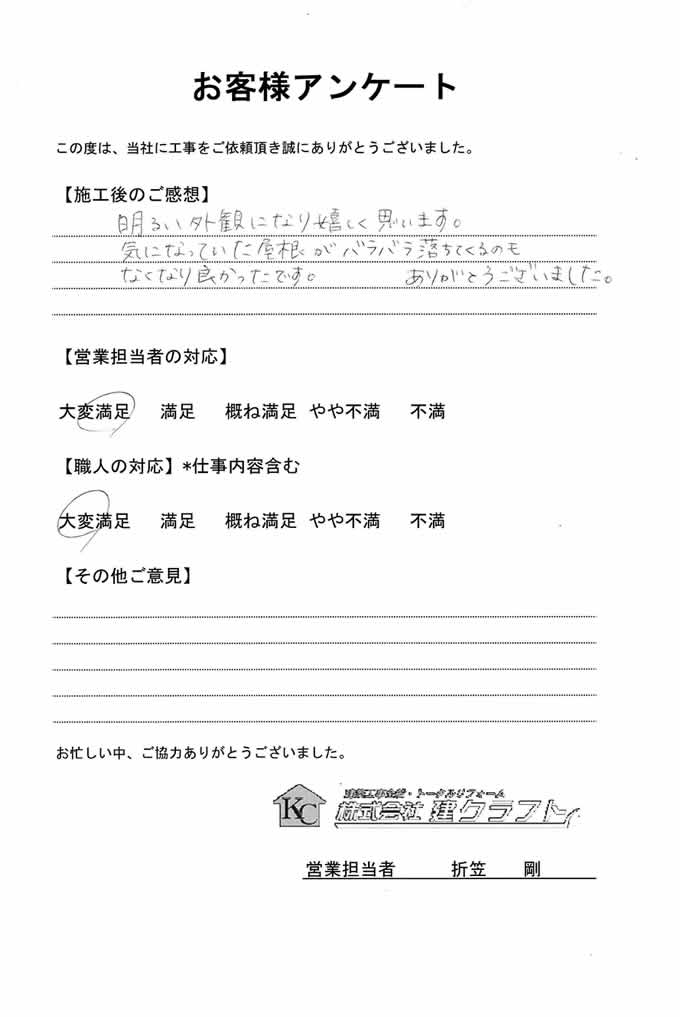 お客様アンケート
この度は、当社に工事をご依頼頂き誠にありがとうございました。
【施工後のご感想】
明るい外観になり嬉しく思います。
気になっていた屋根がバラバラ落ちてくるのも
なくなり良かったです。 ありがとうございました。
【営業担当者の対応】
大変満足 満足 概ね満足 やや不満 不満
【職人の対応】*仕事内容含む
大変満足 満足 概ね満足 やや不満 不満
【その他ご意見】
お忙しい中、ご協力ありがとうございました。
KC
建築工事全般・トータルリフォーム
株式会社 建クラフト
営業担当者 折笠 剛